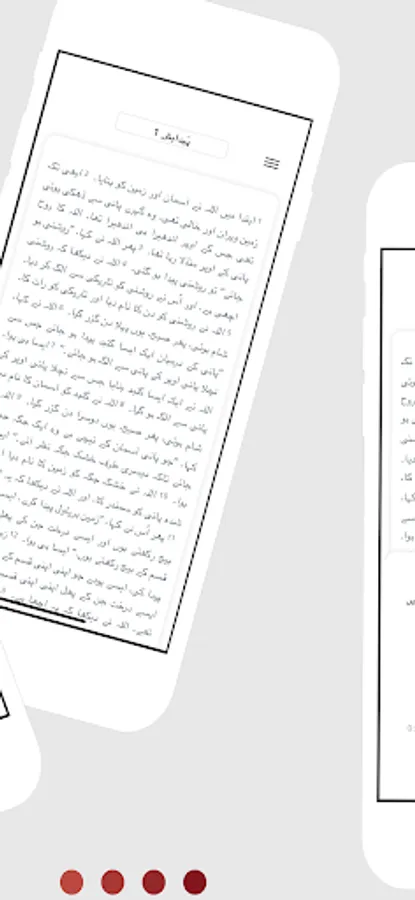 پَیدایش 1
1 ابتدا میں اللہ نے آسمان اور زمین کو بنایا۔ 2 ابھی تک
زمین ویران اور خالی تھی۔ وہ گہرے پانی سے ڈھکی ہوئی
تھی جس کے اوپر اندھیرا ہی اندھیرا تھا۔ اللہ کا روح
پانی کے اوپر منڈلا رہا تھا۔ 3 پھر اللہ نے کہا، ”روشنی ہو
جائے“ تو روشنی پیدا ہو گئی۔ 4 اللہ نے دیکھا کہ روشنی
اچھی ہے، اور اُس نے روشنی کو تاریکی سے الگ کر دیا۔
5 اللہ نے روشنی کو دن کا نام دیا اور تاریکی کو رات کا۔
شام ہوئی، پھر صبح۔ یوں پہلا دن گزر گیا۔ 6 اللہ نے کہا،
”پانی کے درمیان ایک ایسا گنبد پیدا ہو جائے جس سے
نچلا پانی اوپر کے پانی سے الگ ہو جائے۔“ 7 ایسا ہی ہوا۔
اللہ نے ایک ایسا گنبد بنایا جس سے نچلا پانی اوپر کے
پانی سے الگ ہو گیا۔ 8 اللہ نے گنبد کو آسمان کا نام
شام ہوئی، پھر صبح۔ یوں دوسرا دن گزر گیا۔ 9 اللہ
کہا، ”جو پانی آسمان کے نیچے ہے وہ ایک جگہ
جائے تاکہ دوسری طرف خشک جگہ نظر آئے۔“
ہوا۔ 10 اللہ نے خشک جگہ کو زمین کا نام دیا
شدہ پانی کو سمندر کا۔ اور اللہ نے دیکھا کہ یہ
11 پھر اُس نے کہا، ”زمین ہریاول پیدا کرے، ایسے
بیج رکھتے ہوں اور ایسے درخت جن کے پھل
قسم کے بیج رکھتے ہوں۔“ ایسا ہی ہوا۔ 12
پیدا کی، ایسے پودے جو اپنی اپنی قسم کے
ایسے درخت جن کے پھل اپنی اپنی قسم
تھے۔ اللہ نے دیکھا کہ یہ اچھا ہے۔